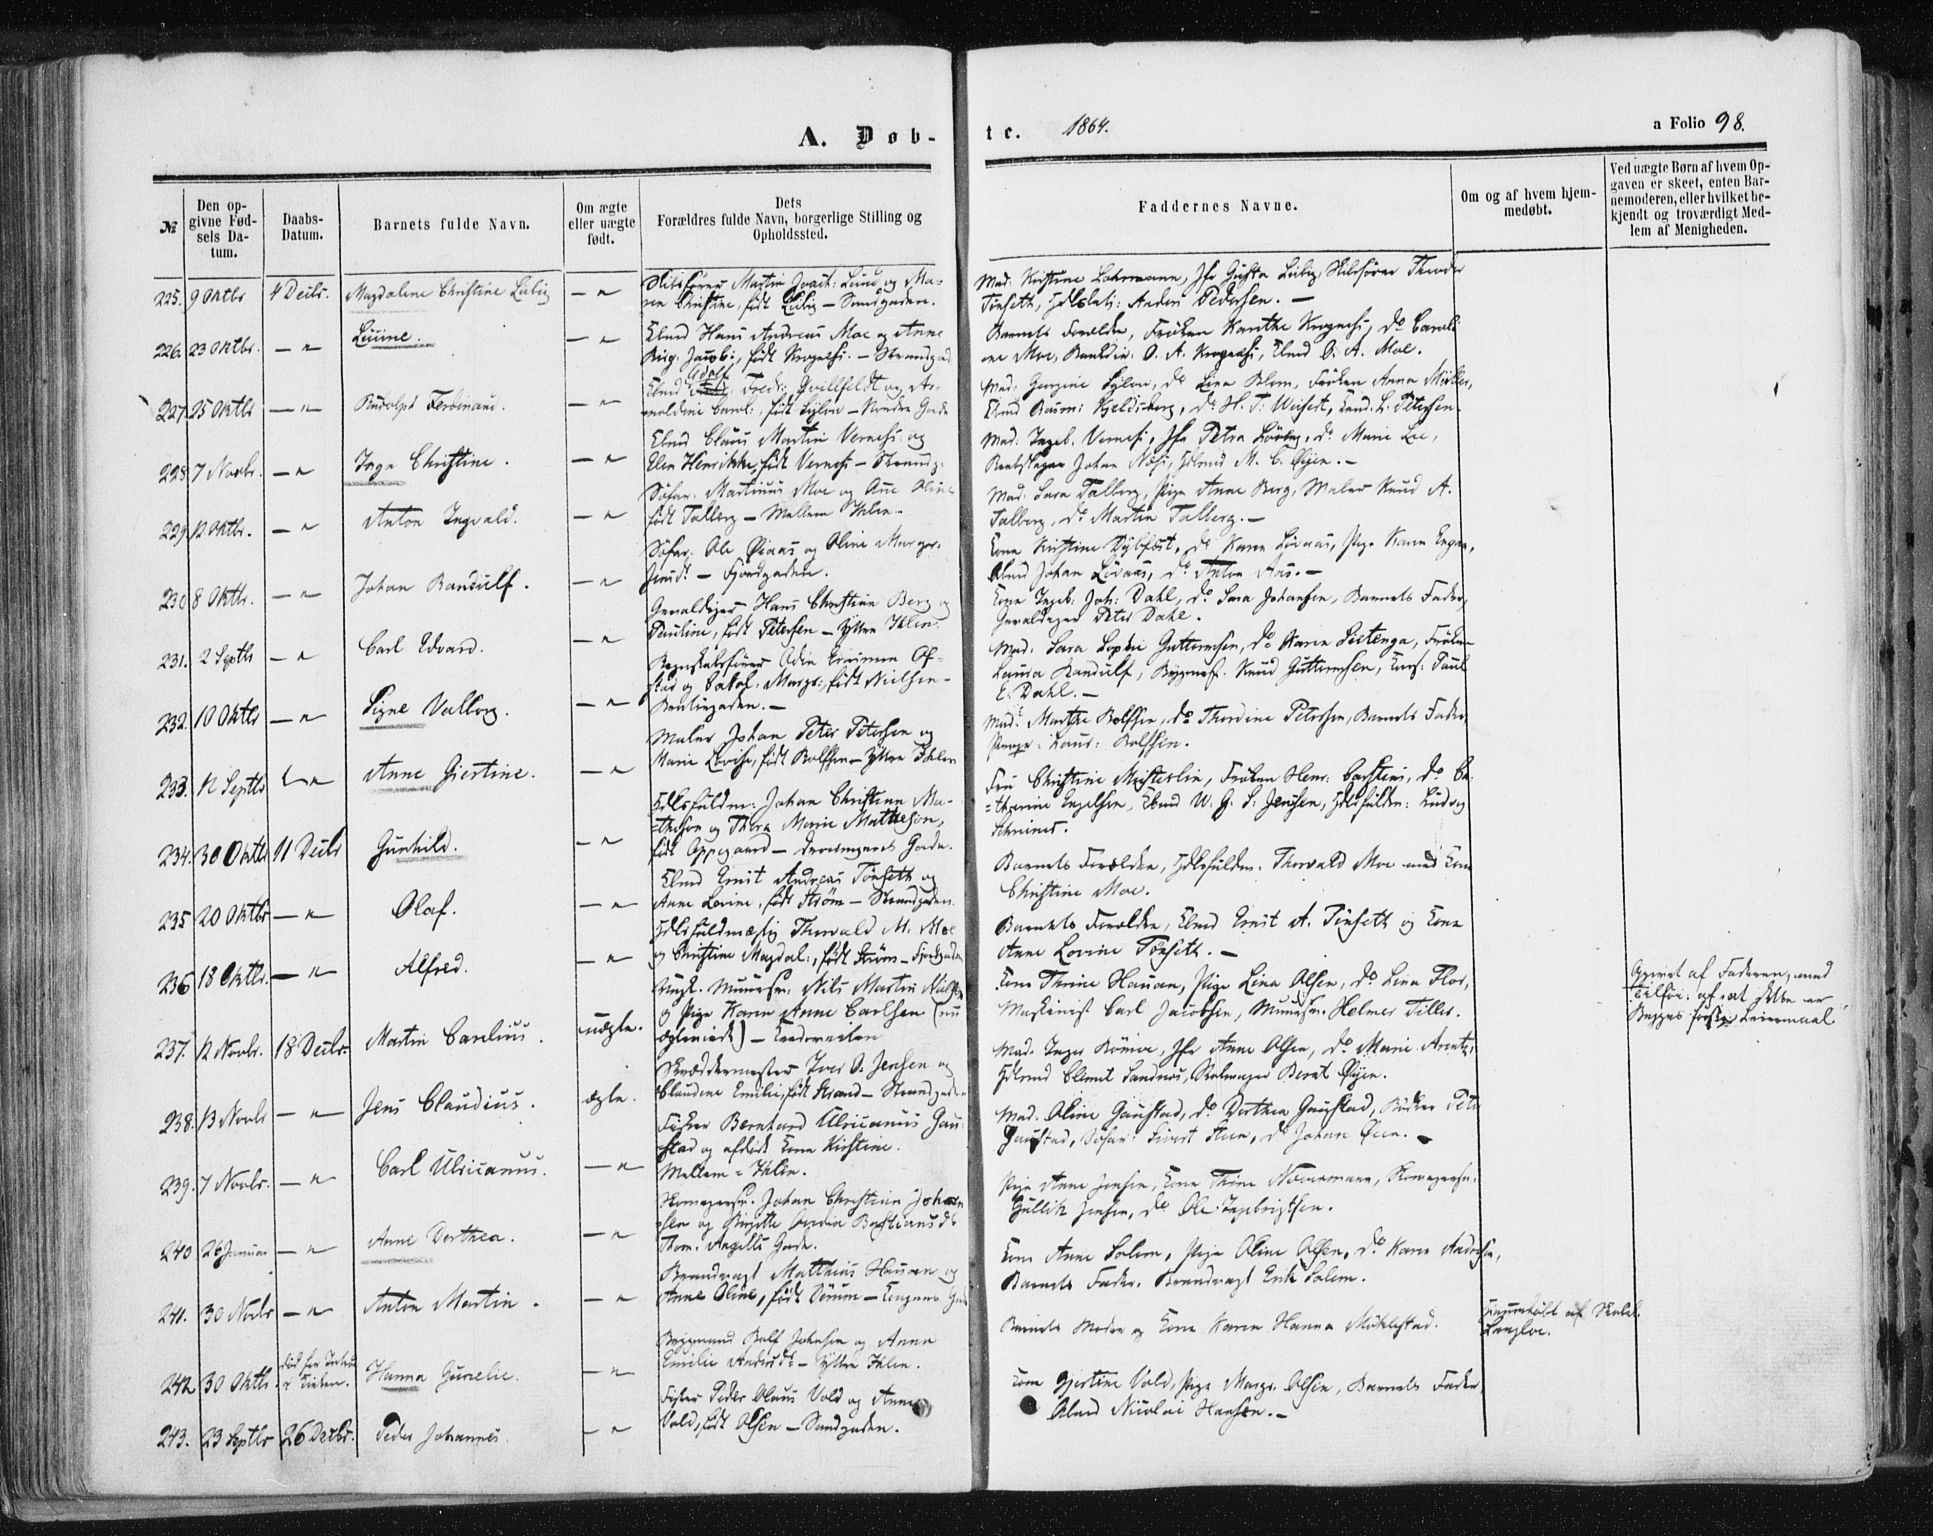 A. Døb-
te. 1864.
a Folio 98.
№
Den op-
givne Fød-
sels Da-
tum.
Daabs-
Datum.
Barnets fulde Navn.
Om ægte
eller uægte
født.
Dets
Forældres fulde Navn, borgerlige Stilling og
Opholdssted.
Faddernes Navne.
Om og af hvem hjem-
medøbt.
Ved uægte Børn af hvem Op-
gaven er skeet, enten Bar-
nemoderen, eller hvilket be-
kjendt og troværdigt Med-
lem af Menigheden.
225. 9 Oktbr 4 Decbr. Magdalene Christine Lubig — " —
Martin Joach: Lund og Ma-
ren Christine, født Lubig — Sandgaden.
Mad. Kristine Lohrmann, Jfr
Tønseth, Anders Pedersen. —
226. 23 Oktbr. — " — — " —
Ebmd Hans Andreas Moe og Anne
Birg. Jacobi, født Krogness. — Strandgad
Barnets Forældre, Frøken Kanthe Krogness, do Caroli-
ne Moe, O. A. Krogness, Ebmd O. A. Moe.
227. 25 Oktbr — " — Rudolph Ferdinand. — " —
Ebmd Adolf Fredr: Qvillfeldt og Ar-
noldine Carol:, født — Nordre Gade
Mad: Georgine do Lina Blom, Frøken Anna Møller,
Ebmd Rasm: Kjeldsberg, do H. T. Weisert, L. Petersen
228. 7 Novbr. — " — Inga Christine. — " —
Ebmd Claus Martin Verness og
Elen Henrikke, født Verness — Strandg.
Mad: Ingeb. Verness, Jfr Petra do Marie Loe,
Johan Næss, M. C. Øyen. —
229. 12 Oktbr. — " — Anton Ingvald. — " —
Søfar. Martinus Moe og Ane Oline
født Talberg — Mellem Ihlen —
Mad. Sara Talberg, Pige Anne Berg, Maler Knud A.
Talberg, do Martin Talberg. —
230 8 Oktbr. — " — Johan Randulf. — " —
Søfar: Ole Øiaas og Oline Margr.
— Fjordgaden.
Kone Kristine Dybfost, do Karen Løvaas, Pige Karen Engan,
Johan Løvaas, do Anton Aas. —
231. 2 Septbr — " — Carl Edvard. — " —
Gevaldiger Hans Christian Berg og
Pauline, født Petersen — Ytre Ihlen
Kone Ingeb: Joh: Dahl, do Sara Johansen, Barnets Fader,
Gevaldiger Peter Dahl.
232. 10 Oktbr — " — Signe Valborg. — " —
Regnskabsfører Odin Of-
stad og Margr:, født Nielsen —
Mad. Sara Sophie Guttormsen, do Karen Frøken
Laura Randulf, Bygmest. Knud Guttormsen, Paul
E. Dahl. —
233. 12 Septbr — " — Anne Giertine. — " —
Maler Johan Peter Petersen og
Marie Lovise, født Rolfsen — Ytre Ihlen
Mad: Marthe Rolfsen, do Thordine Petersen, Barnets Fader,
Laur: Rolfsen.
234. 30 Oktbr 11 Decbr Gunhild. — " —
Hdlsfuldm: Johan Christian Ma-
theson og Thora Marie Matheson,
født Oppegaard — Dronningens Gade.
Fru Christine Frøken Henr. Carstens, do Ca-
thrine Engelsen, Ebmd W. G. S. Jenssen, Hdlsfuldm: Ludvig
Schreiner.
235 20 Oktbr — " — Olaf. — " —
Ebmd Ernst Andreas Tønseth og
Anne Lovine, født Strøm — Strandgaden.
Barnets Forældre, Hdlsfuldm: Thorvald Moe med Kone
Christine Moe.
236 18 Oktbr. — " — Alfred. — " —
Hdlsfuldmægtig Thorvald M. Moe
og Christine Magdal:, født Strøm — Fjordgaden
Barnets Forældre, Ebmd Ernst A. Tønseth og Kone
Anne Lovine Tønseth. —
237. 12 Novbr. 18 Decbr. Martin Carelius. uægte.
Ungk. Murersv: Nils Martin
og Pige Karen Anne Carlsen (nu
ægteviede) —
Kone Thrine Hauan, Pige Lina Olsen, do Lina Flor,
Maskinist Carl Jacobsen, Murersv. Helmer Tiller.
Opgivet af Faderen, med
Tilføi: af, at dette er
Begges første Leiermaal
238. 13 Novbr — " — Jens Claudius. ægte.
Skræddermester Iver O. Jensen og
Claudine Emilie, født Strand — Strandgaden
Mad. Inger Rømoe, Jfr Anne Olsen, do Marie Arentz,
Clemet Sandnes, Skomager Bernt Øyen.
239. 7 Novbr. — " — Carl Ulricanus. — " —
Fisker Bernhard Ulricanus Gau-
stad og afdøde Kone Kirstine.
Mellem-Ihlen.
Mad. Oline Gaustad, do Dorthea Gaustad, Bødker Peter
Gaustad, Søfar: Sivert Steen, do Johan Øien. —
240 26 Januar — " — Anne Dorthea. — " —
Skomagersv. Johan Christian Johan-
sen og Birgitte Bastiansd.
Thom: Angells Gade.
Pige Anne Jensen, Kone Thrine Skomagersv:
Gullik Jensen, do Ole Ingebrigtsen.
241. 30 Novbr — " — Anton Martin. — " —
Brandvagt Matthias Hauan og
Anne Oline, født — Kongens Gad
Kone Anne Solem, Pige Oline Olsen, do Karen
Barnets Fader, Brandvagt Erik Solem.
242 30 Oktbr død før i Kirken. Hanna Gurelie. — " —
Bygmand Rolf Johnsen og Anna
Emilie Andersd. — Ytre Ihlen.
Barnets Moder og Kone Karen Hanna Moklestad.
Hjemmedøbt af
Langloe.
243. 23 Septbr 26 Decbr. Peder Johannes. — " —
Fisker Peder Olaus Vold og Anne
Vold, født Olsen — Sandgaden.
Kone Gjertine Vold, Pige Margr. Olsen, Barnets Fader,
Nicolai Hansen. —